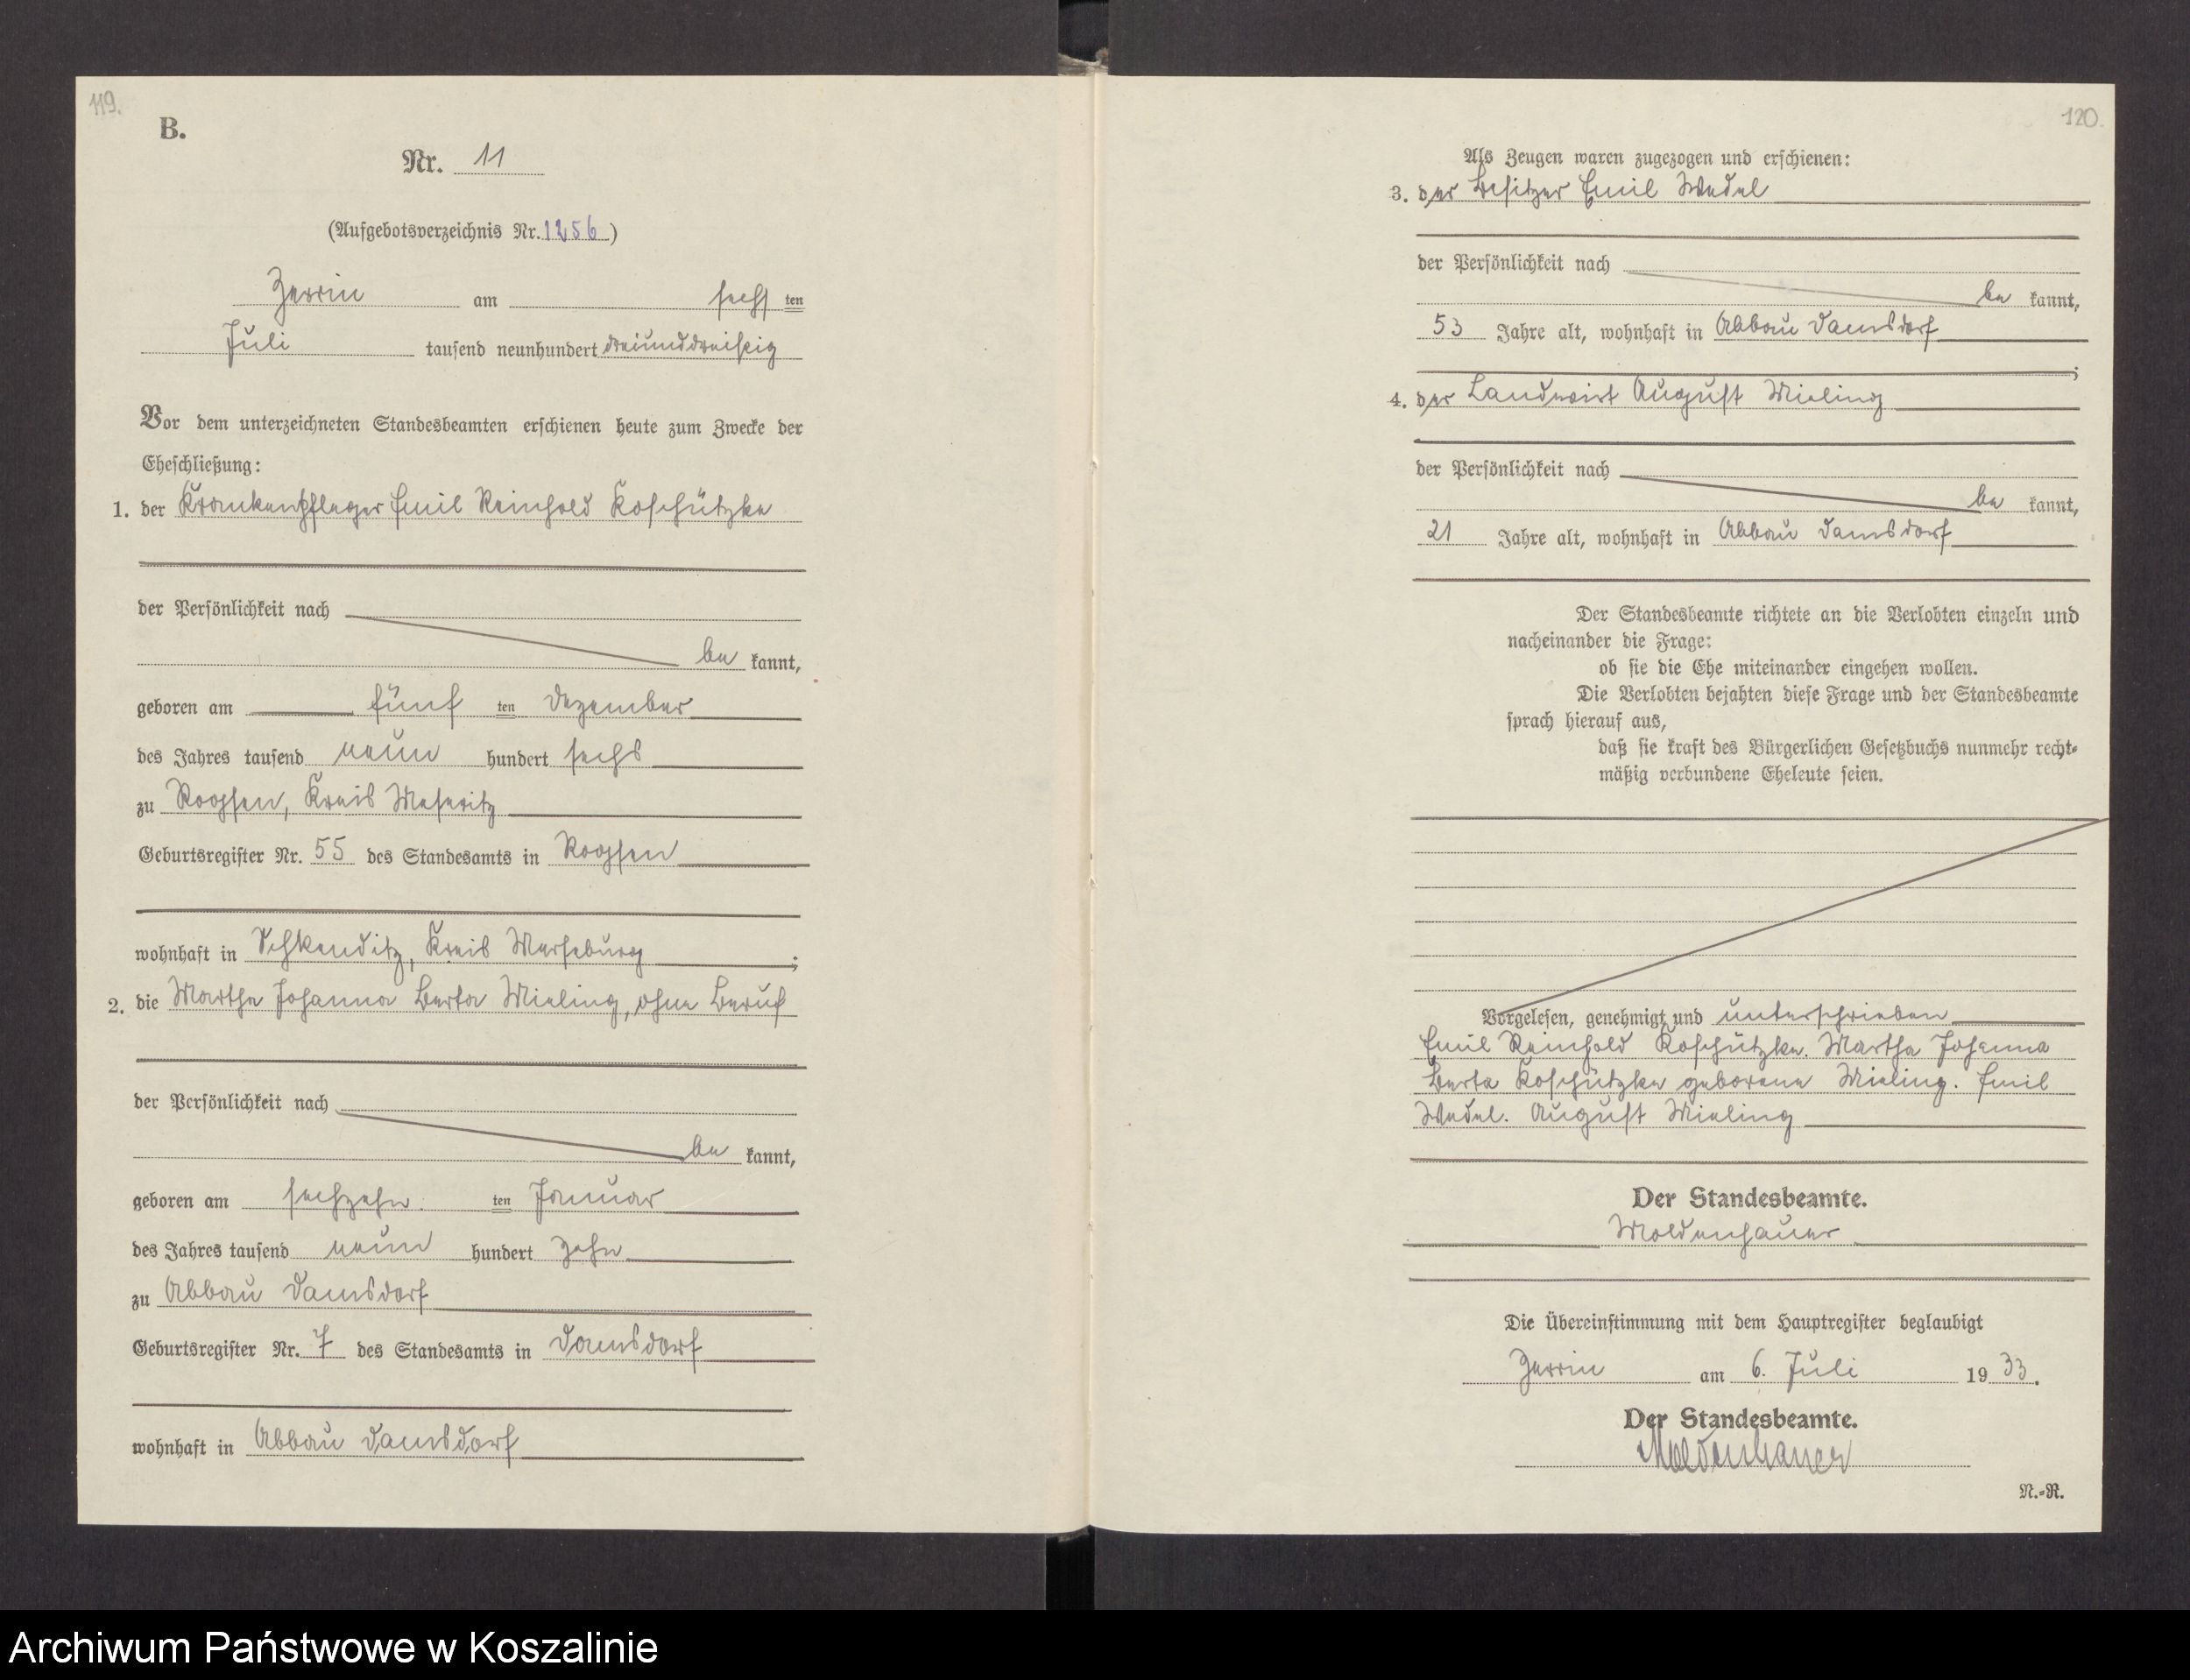 119.
B.
Nr. 11
(Aufgebotsverzeichnis Nr. 1256)
Zerrin am sechsten
Juli tausend neunhundert dreiunddreißig
Vor dem unterzeichneten Standesbeamten erschienen heute zum Zwecke der
Eheschließung:
1. der Krankenpfleger Emil Reinhold Koschützke
der Persönlichkeit nach
be kannt,
geboren am fünf ten Dezember
des Jahres tausend neun hundert sechs
zu Rogsen, Kreis Meseritz
Geburtsregister Nr. 55 des Standesamts in Rogsen
wohnhaft in Schkeuditz, Kreis Merseburg;
2. die Martha Johanna Berta Mieling, ohne Beruf
der Persönlichkeit nach
be kannt,
geboren am sechzehn ten Januar
des Jahres tausend neun hundert zehn
zu Abbau Damsdorf
Geburtsregister Nr. 7 des Standesamts in Damsdorf
wohnhaft in Abbau Damsdorf
120.
Als Zeugen waren zugezogen und erschienen:
3. der Besitzer Emil Wedel
der Persönlichkeit nach
be kannt,
53 Jahre alt, wohnhaft in Abbau Damsdorf
;
4. der Landwirt August Mieling
der Persönlichkeit nach
be kannt,
21 Jahre alt, wohnhaft in Abbau Damsdorf
Der Standesbeamte richtete an die Verlobten einzeln und
nacheinander die Frage:
ob sie die Ehe miteinander eingehen wollen.
Die Verlobten bejahten diese Frage und der Standesbeamte
sprach hierauf aus,
daß sie kraft des Bürgerlichen Gesetzbuchs nunmehr recht-
mäßig verbundene Eheleute seien.
Vorgelesen, genehmigt und unterschrieben
Emil Reinhold Koschützke. Martha Johanna
Berta Koschützke geborene Mieling. Emil
Wedel. August Mieling
Der Standesbeamte.
Moldenhauer
Die Übereinstimmung mit dem Hauptregister beglaubigt
Zerrin am 6. Juli 1933.
Der Standesbeamte.
Moldenhauer
N.-R.
Archiwum Państwowe w Koszalinie